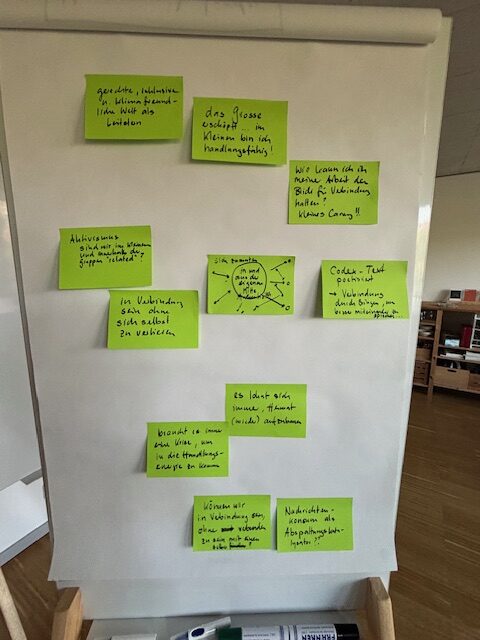 gerechte, inklusive
u. klimafreund-
liche Welt als
Leitstern
das Grosse
erschöpft... im
Kleinen bin ich
handlungsfähig!
Wie kann ich in
meine Arbeit den
Blick für Verbindung
halten?
kleines Caring!!
Aktivismus
sind wir im Kleinen
und innerhalb der
gruppen "related"?
sich sammeln
in und
aus der
eigenen
Mitte
Codex-Text
poetisiert
→ Verbindung
durch Singen, um
besser miteinander zu
in Verbindung
sein ohne
sich selbst
zu verlieren
es lohnt sich
immer, Heimat
(wieder) aufzubauen
braucht es immer
eine Krise, um
in die Handlungs-
energie zu kommen
können wir
in Verbindung sein,
ohne verbunden
zu sein mit einem
Nachrichten-
konsum als
Abspaltungs